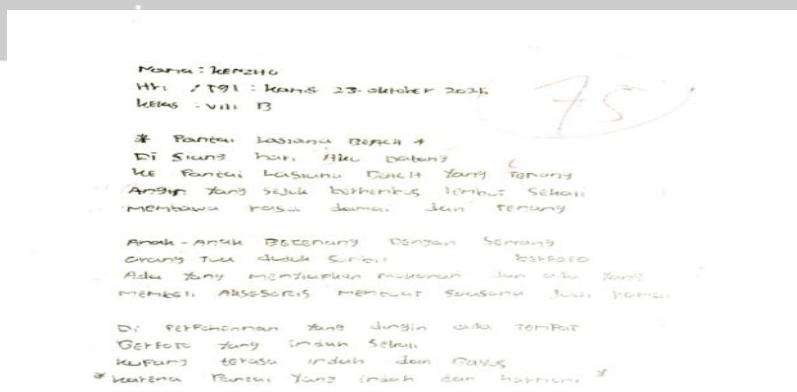 Nama : KENZHO
Hri / Tgl : Kamis 23 oktober 2025
Kelas : VIII B
75
* Pantai Lasiana BEACH *
Di Siang hari Aku Datang
KE Pantai Lasiana BEACH Yang Tenang
Angin Yang Sejuk berhembus lembut Sekali
membawa rasa damai dan tenang
Anak-Anak BErenang Dengan Senang
orang Tua duduk Sambil berfoto
Ada Yang menyiapkan makanan dan ada Yang
MEMBELI AKSESORIS membuat Suasana Jadi ramai
Di Perpohonan Yang dingin ada TEMPAT
BErFoto Yang indah Sekali
Kupang terasa indah dan Bagus
* karena Pantai Yang indah dan *